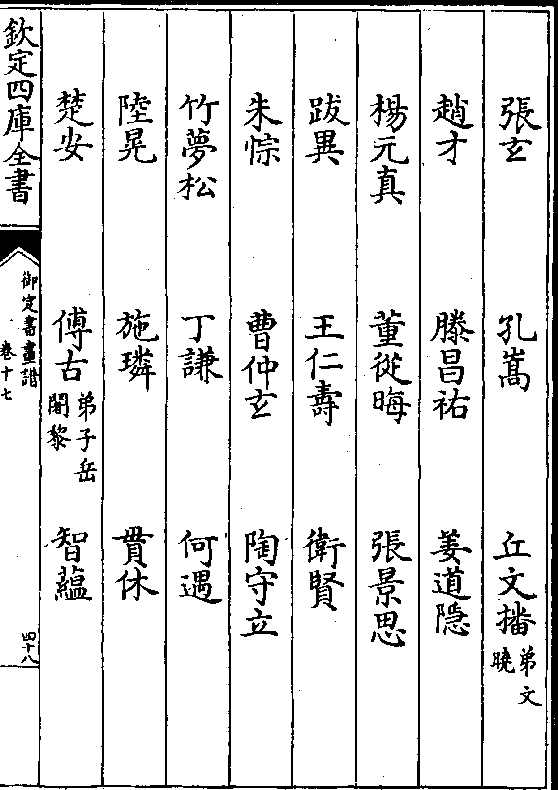 張玄　孔嵩　丘文播弟文曉
趙才　滕昌祐　姜道隠
楊元真　董從晦　張景思
跋異　王仁壽　衛賢
朱悰　曹仲玄　陶守立
竹夢松　丁謙　何遇
陸晃　施璘　貫休
楚安　傅古弟子岳闍黎　智藴
欽定四庫全書
御定書畫譜
卷十七
四十八